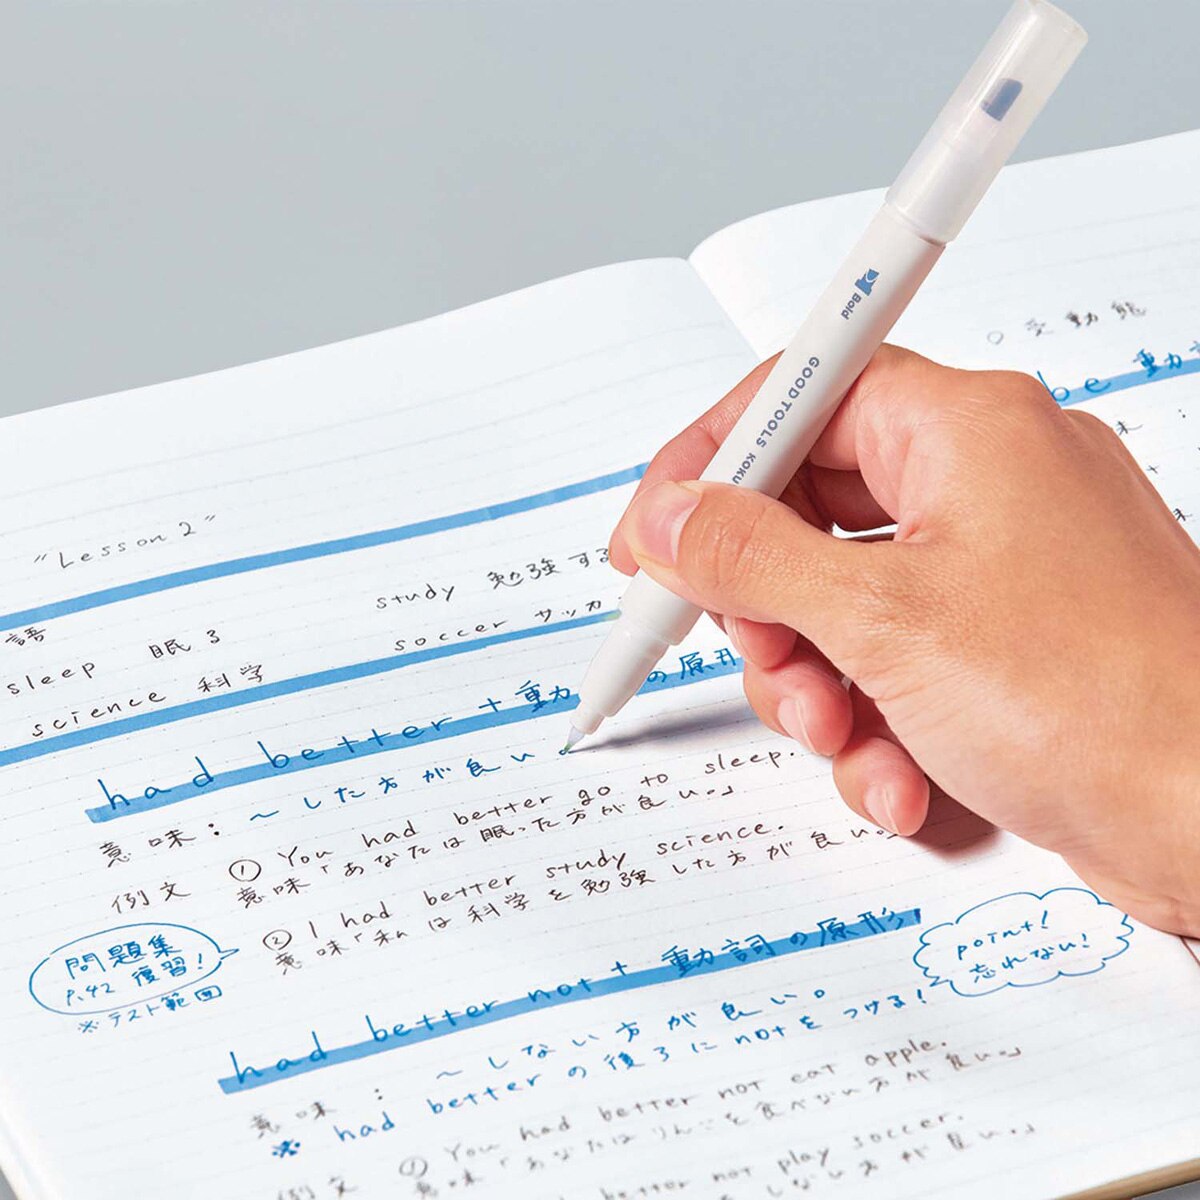 Bold
GOOD TOOLS
"Lesson 2"
語
study 勉強する
sleep 眠る
soccer サッカ
science 科学
had better + 動
の原形
意味: ～した方が良い。
例文 ① You had better go to sleep.
意味「あなたは眠った方が良い。」
② I had better study science.
意味「私は科学を勉強した方が良い。」
問題集
P.42 復習!
※テスト範囲
had better not + 動詞の原形
point!
忘れない!
意味: ～しない方が良い。
※ had better の後ろに notをつける!
例文 ① You had better not eat apple.
意味「あなたはりんごを食べない方が良い。」
better not play soccer.
しない方が良い。」
○受動態
be 動
味: